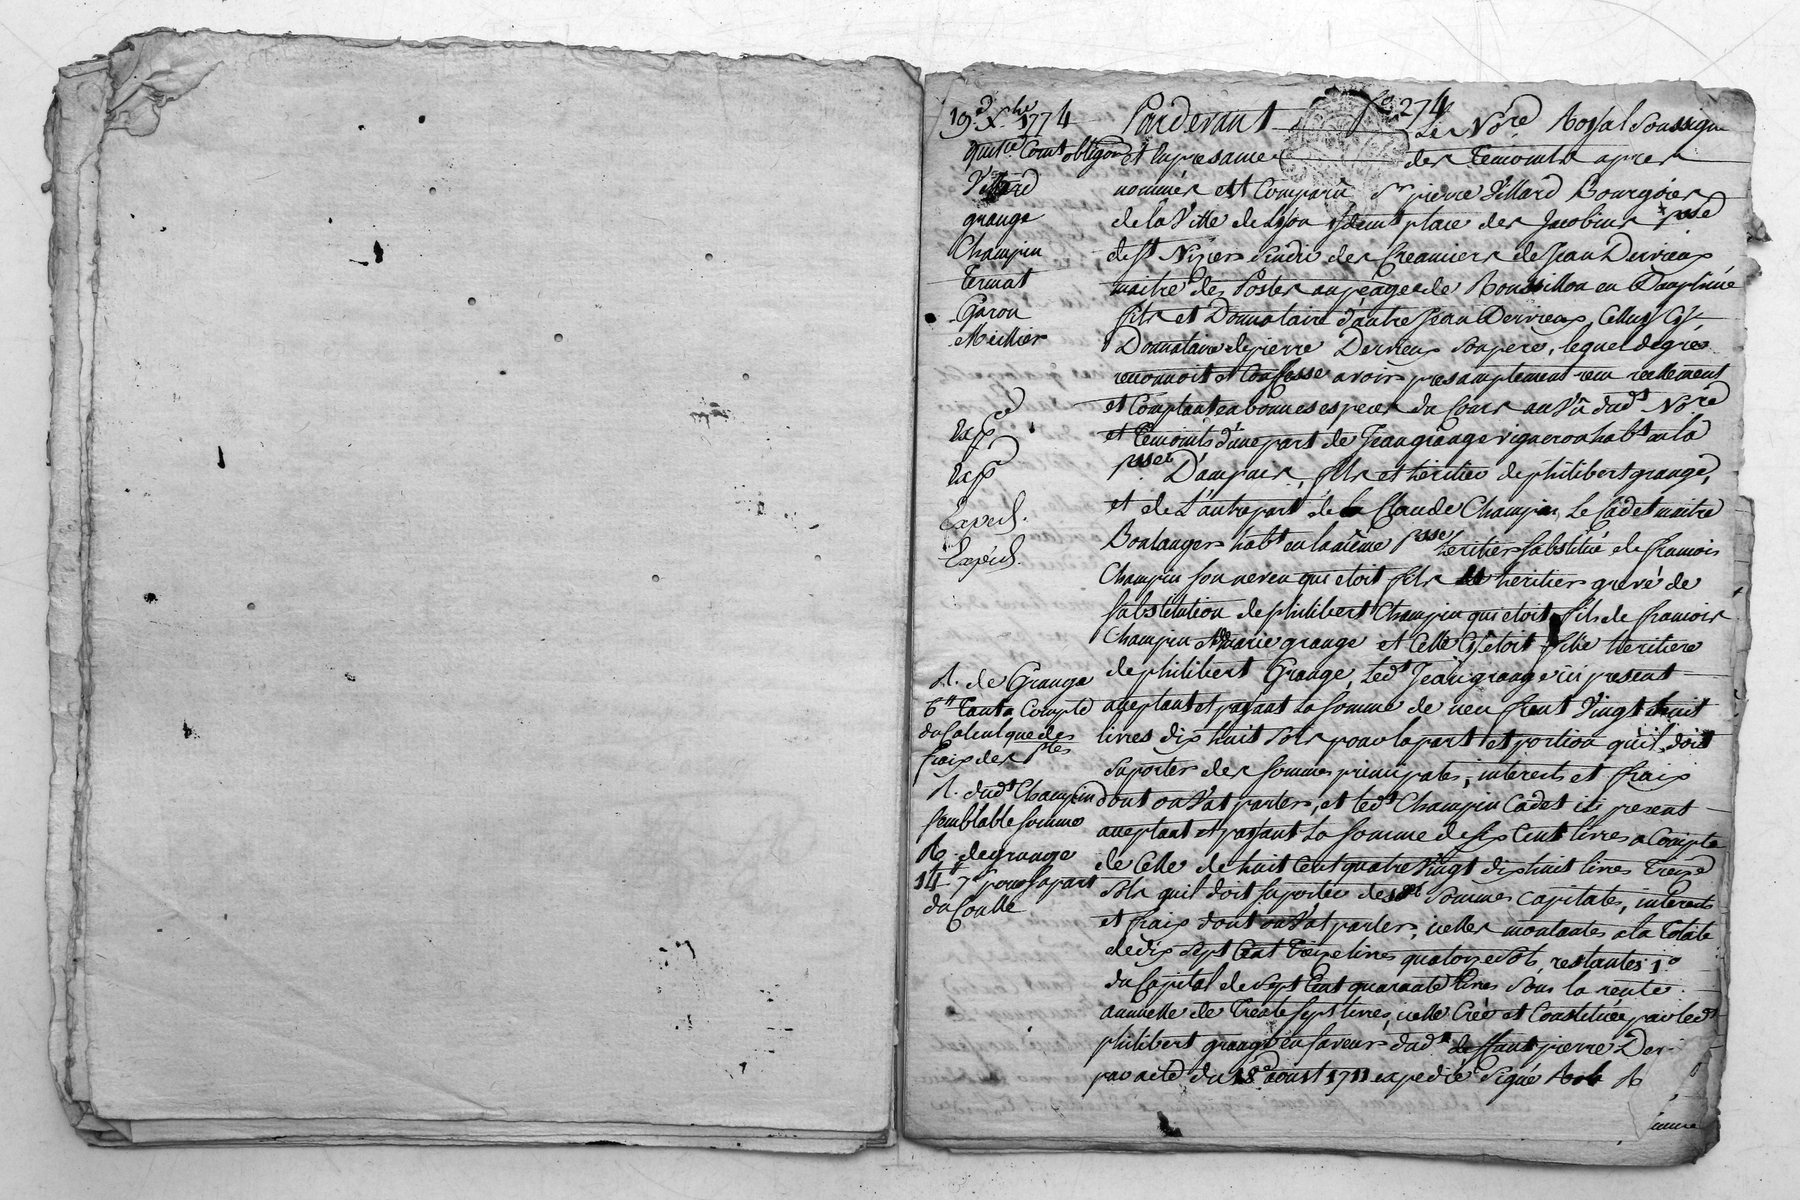 fo 274
19e Xbre 1774
quitce Cont obligon
Villard
grange
Champin
Termat
Garon
Meillier
Exp
Exp
Expéd.
Expéd.
R. de Grange
6tt Tant a Compte
du Calcul que des
fraix des ptes
R. dudt Champin
semblable somme
R. de grange
14 pour sa part
du Conlle
Pardevant Le Nore Royal Soussigné
et En presance des Temoints apres
nommés est Comparu Sr pierre Villard Bourgois
de la Ville de Lyon y demt place des Jacobins psse
de St Nizier sindic des Creanciers de Jean Dervieux
maitre des Postes au péage de Roussillon en Dauphiné
fils et Donnataire d'autre Jean Dervieux, Celluy Cy
Donnataire de pierre Dervieux son pere, lequel de gres
reconnoit et Confesse avoir presamptement reçu reellement
et Comptant en bonnes especes du Cours au Vû dudt Nore
et Temoints d'une part de Jean grange vigneron habt en la
psse D'ampuis, fils et héritier de philibert grange,
et de L'autre part de Claude Champin Le Cadet maitre
Boulanger habt en la même psse heritier substitué de francois
Champin son neveu qui etoit fils et heritier grevé de
substitution de philibert Champin qui etoit fils de francois
Champin et Marie grange et Celle Cy etoit fille heritiere
de philibert Grange, Ledt Jean grange ici present
acceptant et payant La somme de neuf cent Vingt huit
livres dix huit sols pour la part et portion qu'il doit
suporter des sommes principales, interests et fraix
dont on Vat parler, et ledt Champin Cadet ici present
acceptant et payant La somme de six Cent livres a Compte
de Celle de huit Cent quatre Vingt dix huit livres Treize
sols quil doit suporter des sommes capitales, interests
et fraix dont on Vat parler, icelles montantes a la Totalité
de dix sept Cent Treize livres quatorze sols, restantes 1o
du Capital de sept Cent quarante livres sous la rente
annuelle de Trente sept livres, icelle Crée et Constituée par ledt
philibert grange en faveur dudt deffunt pierre Der-
par acte du 18e aoust 1711 expedié signé